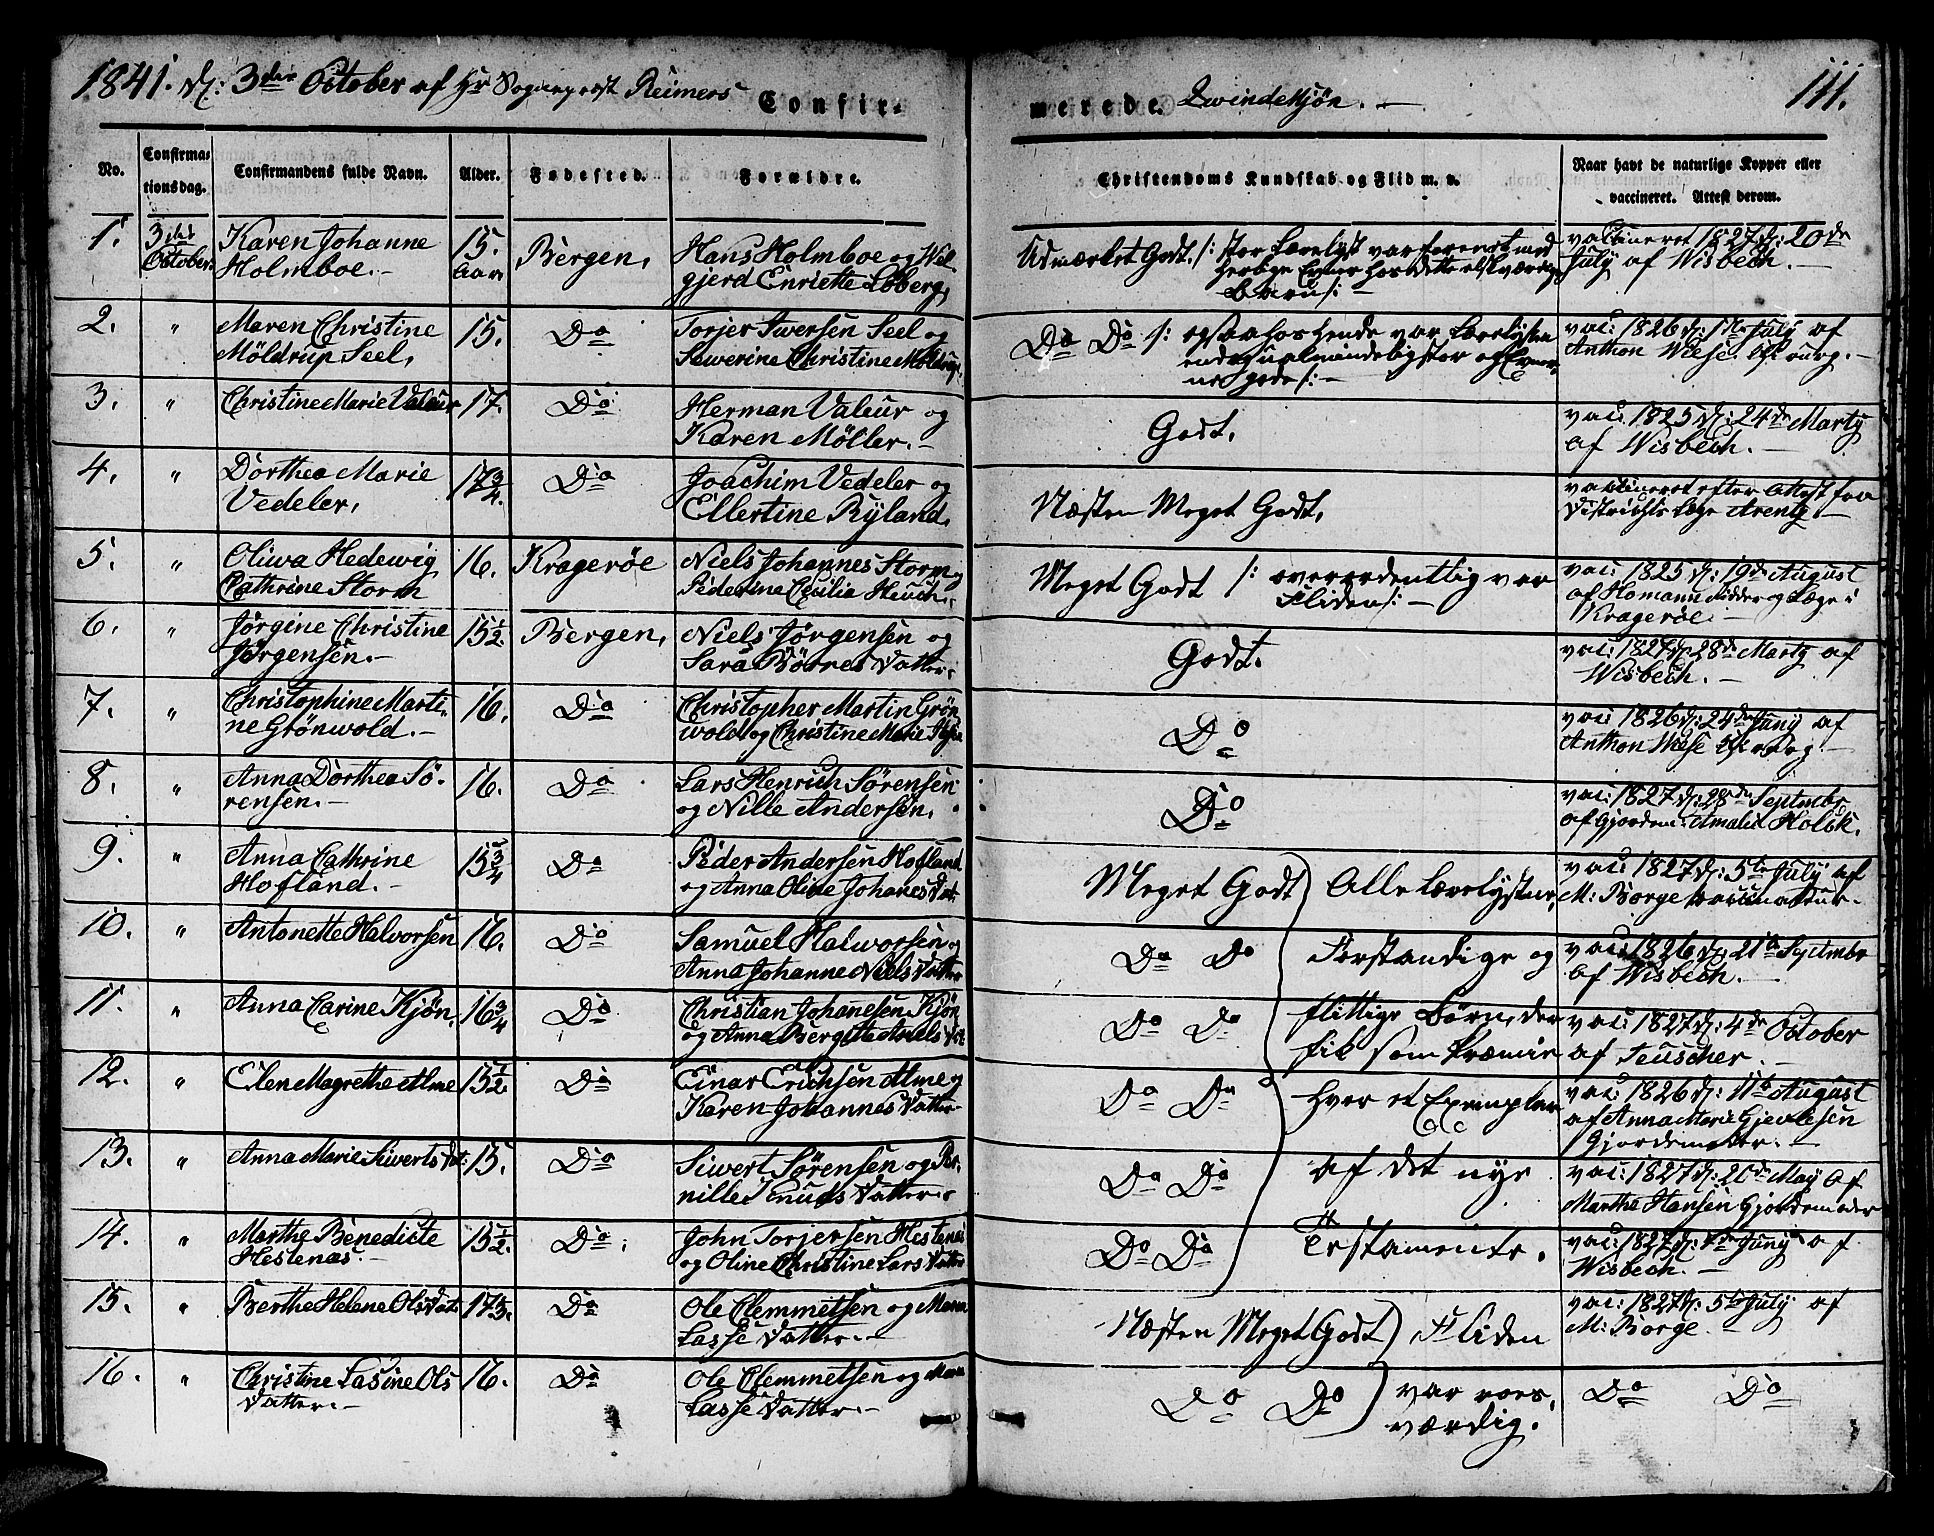 1841. d: 3die October af Hr Sogneprest Reimers
Confir-
merede Qvindekjøn.
111.
No.
Confirma-
tionsdag.
Confirmandens fulde Navn.
Alder.
Fødested.
Forældre.
Christendoms Kundskab og Flid m. v.
Naar havt de naturlige Kopper eller
vaccineret. Attest derom.
1. 3die October. Karen Johanne
Holmboe.
15. Aar
Bergen,
Hans Holmboe og Wel-
gjerd Enriette Loberg,
Udmærket Godt. /: stor Lærelyst var forenet med
herlige Evner hos dette elskværdige
Barn :/
vaccineret 1827 d: 20de
July af Wisbech.
2. " Maren Christine
Möldrup Seel,
15.
Do
Torjer Siversen Seel og
Sewerine Christine Möldrup.
Do Do /: ogsaa hos hende var Lærelysten
usædvanligst stor og Evner-
ne gode :/
vac: 1826 d: 1ste July af
Anthon Wiese
3. " Christine Marie Valeur
17.
Do
Herman Valeur og
Karen Möller.
Godt.
vac: 1825 d: 24de Marty
af Wisbech.
4. " Dorthea Marie
Vedeler,
17 3/4.
Do
Joachim Vedeler og
Ellertine Ryland,
Næsten Meget Godt,
vaccineret efter Attest fra
Districhts Læge Arentz.
5. " Oliwa Hedewig
Cathrine Storm
16.
Kragerøe
Niels Johannes Storm og
Pederine Cecilia Heuch.
Meget Godt /: overordentlig var
Fliden :/
vac: 1825 d: 19de August
af Homann Ridder og Læge i
Kragerøe.
6. " Jørgine Christine
Jørgensen.
15 1/2.
Bergen,
Niels Jørgensen og
Sara Börres Datter.
Godt.
vac: 1827 d: 28de Marty af
Wisbech.
7. " Christophine Marti-
ne Grönwold.
16.
Do
Christopher Martin Grön-
wold og Christine Marie
Do
vac: 1826 d: 24de Juny af
Anthon Wiese
8. " Anna Dorthea Sö-
rensen.
16.
Do
Lars Henrich Sörensen
og Nille Andersen,
Do
vac: 1827 d: 28de Septmbr
af Gjordem: Amalie Holck.
9. " Anna Cathrine
Hofland.
15 3/4
Do
Peder Andersen Hofland
og Anna Oline Johanes Dat.
Meget Godt Alle Lærelystne,
vac: 1827 d: 5te July af
M: Borge vaccinateur.
10. " Antonette Halvorsen
16.
Do
Samuel Halworsen og
Anna Johanne Niels Datter
Do Do Forstandige og
vac: 1826 d: 21de Septmbr
af Wisbech.
11. " Anna Carine Kjön,
16 3/4
Do
Christian Johanesen Kjön
og Anna Bergitte Niels Dat
Do Do flittige Börn, der
fik som Præmie
vac: 1827 d: 4de October
af Teuscher.
12. " Elen Magrethe Alme
15 1/2.
Do
Einar Erichsen Alme og
Karen Johannes Datter
Do Do hver et Exemplar
vac: 1826 d: 11te August
af Anna Marie Gjertsen
Gjordemoder.
13. " Anna Marie Siverts Dat.
15.
Do
Siwert Sörensen og Per-
nille Knuds Datter.
Do Do af det nye
vac: 1827 d: 20de May af
Marthe Hansen Gjordemoder
14. " Marthe Benedicte
Hestenæs.
15 1/2.
Do.
John Torjersen Hestenes
og Oline Christine Lars Datter
Do Do Testamente.
vac: 1827 d: Juny af
Wisbech.
15. " Berthe Helene Ols Dat.
17
Do
Ole Clemmetsen og Maren
Lasse Datter.
Næsten Meget Godt Fliden
vac: 1827 d: 5te July af
M: Borge.
16. " Christine Lasine Ols
Datter.
16.
Do
Ole Clemmetsen og Maren
Lasse Datter.
Do Do var roes-
værdig.
Do Do